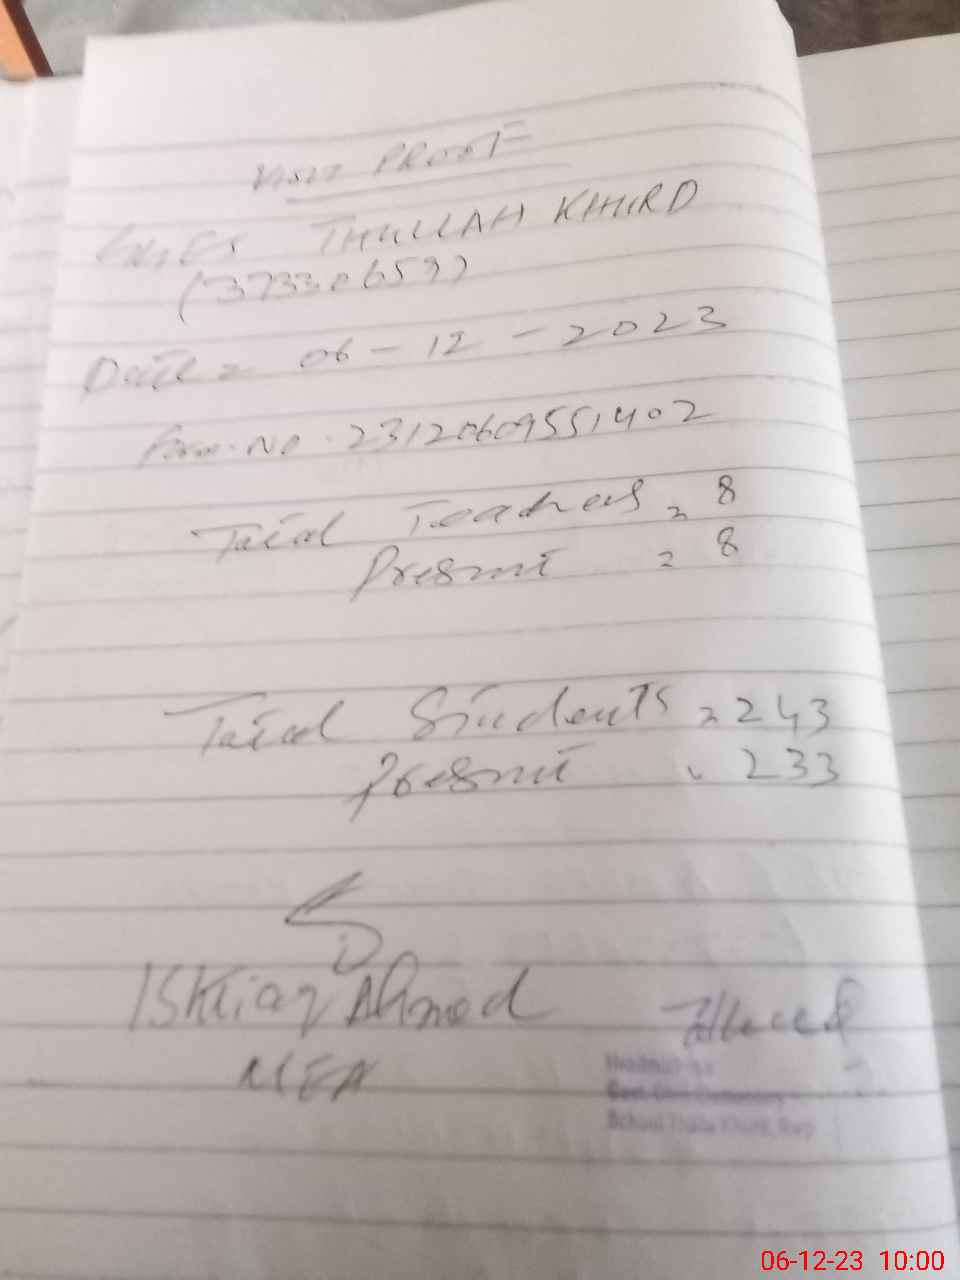 VISIT PROOF
GGES THULLAH KHURD
(37330659)
Date = 06 - 12 - 2023
Form. No. 23120609551402
Total Teachers = 8
Present = 8
Total Students = 243
Present = 233
Ishtiaq Ahmed
MEA
Headmistress
Govt. Girls Elementary
School Thalla Khurd, Rwp
06-12-23 10:00